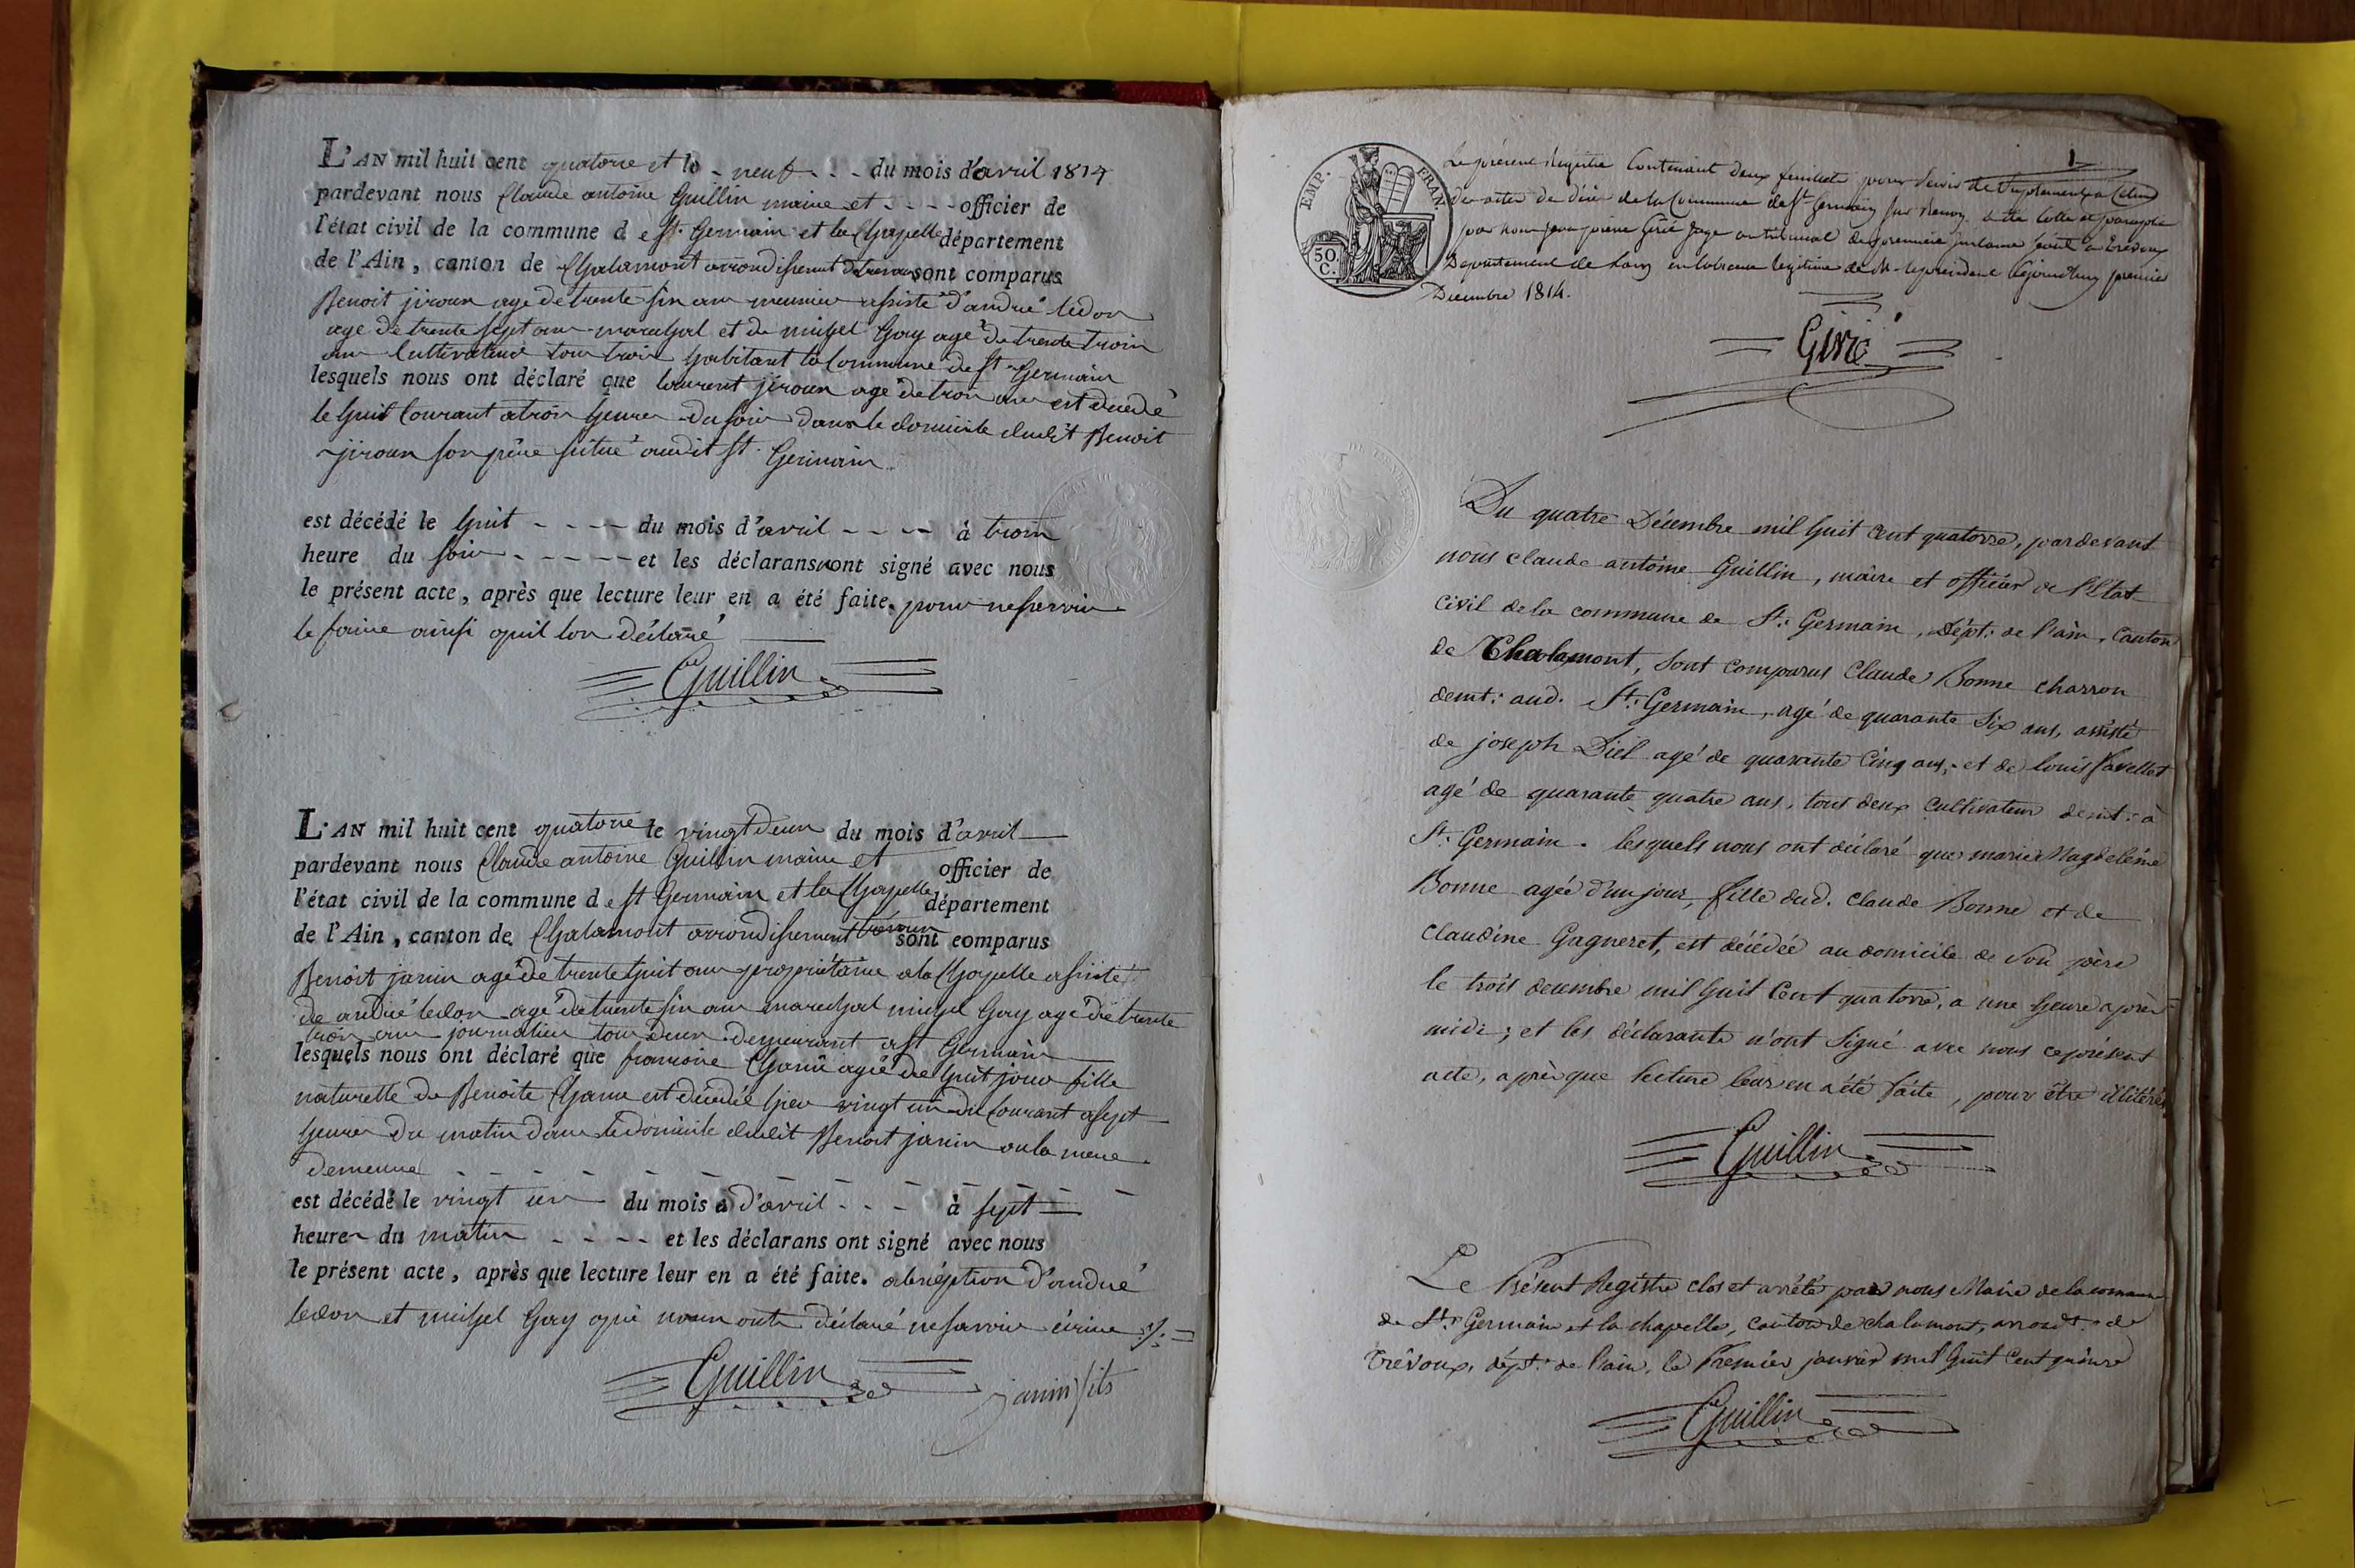 L'AN mil huit cent quatorze et le - neuf - - - du mois d'avril 1814
pardevant nous Claude antoine Guillin maire et - - - - officier de
l'état civil de la commune d e St. Germain et la Chapelle département
de l'Ain, canton de Chalamont arrondissement de trevoux sont comparus
Benoit jiroux age de trente six ans meunier assisté d'andré ledon
age de trente sept ans marechal et de michel Gay agé de trente trois
ans Cultivateur tous trois habitant la Commune de St Germain
lesquels nous ont déclaré que laurent jiroux agé de trois ans est décédé
le huit Courant a trois heures du soir dans le domicile dudit Benoit
jiroux son père situé audit St. Germain
est décédé le huit - - - - du mois d'avril - - - - à trois
heure du soir - - - - - et les déclarans ont signé avec nous
le présent acte, après que lecture leur en a été faite. pour ne savoir
le faire ainsi quil lon déclaré
Guillin
L'AN mil huit cent quatorze le vingt deux du mois d'avril
pardevant nous Claude antoine Guillin maire et officier de
l'état civil de la commune d e St Germain et la Chapelle département
de l'Ain, canton de Chalamont arrondissement trevoux sont comparus
Benoit janin agé de trente huit ans propriétaire a la Chapelle assisté
de andré ledon agé de trente six ans marechal michel Gay agé de trente
trois ans journalier tous deux demeurant a St Germain
lesquels nous ont déclaré que francoise Chanu agée de huit jours fille
naturelle de Benoite Chanu est décédée hier vingt un du Courant a sept
heures du matin dans le domicile dudit Benoit janin ou la mere
demeure - - - - - - - - -
est décédé le vingt un du mois d'avril - - - à sept
heures du matin - - - - et les déclarans ont signé avec nous
le présent acte, après que lecture leur en a été faite. a l'exeption d'andré
ledon et michel Gay qui nous ont déclaré ne savoir écrire
Guillin janin fils
1
EMP. FRAN.
50 C.
Le présent Registre Contenant deux feuillets pour servir de Suplement a Celui
des actes de décès de la Commune de St Germain sur Renon a été Cotté et paraphé
par nous jean pierre Girié juge au tribunal de première instance séant a Trévoux
Département de Lain en labsence légitime de Mr le president Cejourdhuy premier
Décembre 1814.
Girié
Du quatre Décembre mil huit Cent quatorze, pardevant
nous claude antoine Guillin, maire et officier de l'Etat
Civil de la commune de St. Germain, Dépt. de l'ain, Canton
de Chalamont, sont comparus Claude Bonne charron
demt: aud. St. Germain, agé de quarante Six ans, assisté
de joseph Diel agé de quarante Cinq ans, et de louis favellet
agé de quarante quatre ans, tous deux cultivateur demt: à
St. Germain. lesquels nous ont déclaré que marie Magdeleine
Bonne agée d'un jour, fille dud. Claude Bonne et de
Claudine Gagneret, est décédée au domicile de Son père
le trois decembre mil huit Cent quatorze, a une heure après
midi; et les déclarants n'ont Signé avec nous ce présent
acte, après que lecture leur en a été faite, pour être illitérés
Guillin
Le Présent Registre clos et arrêté par nous Maire de la commune
de St. Germain et la chapelle, canton de chalamont, arrondt. de
Trévoux, dépt. de l'ain, le Premier janvier mil huit Cent quinze
Guillin